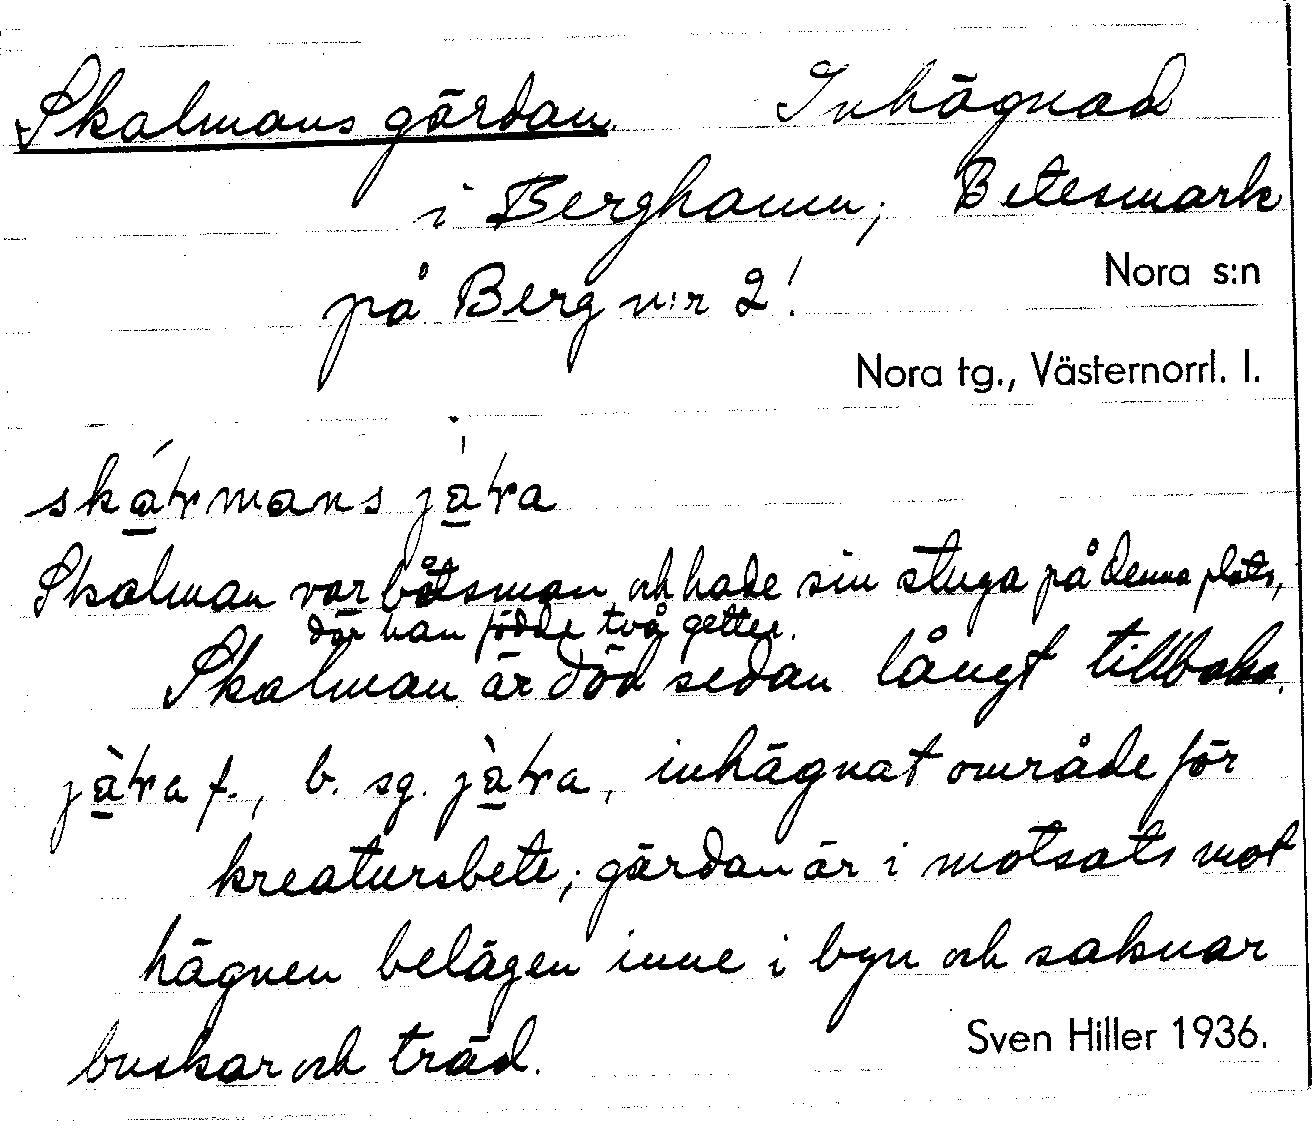 Skalmans gärdan. Inhägnad
i Berghamn; Betesmark
på Berg n:r 2!
Nora s:n
Nora tg., Västernorrl. l.
Skalman var båtsman och hade sin stuga på denna plats,
där han födde två getter.
Skalman är död sedan långt tillbaka.
f., b. sg. inhägnat område för
kreatursbete; gärdan är i motsats mot
hägnen belägen inne i byn och saknar
buskar och träd.
Sven Hiller 1936.